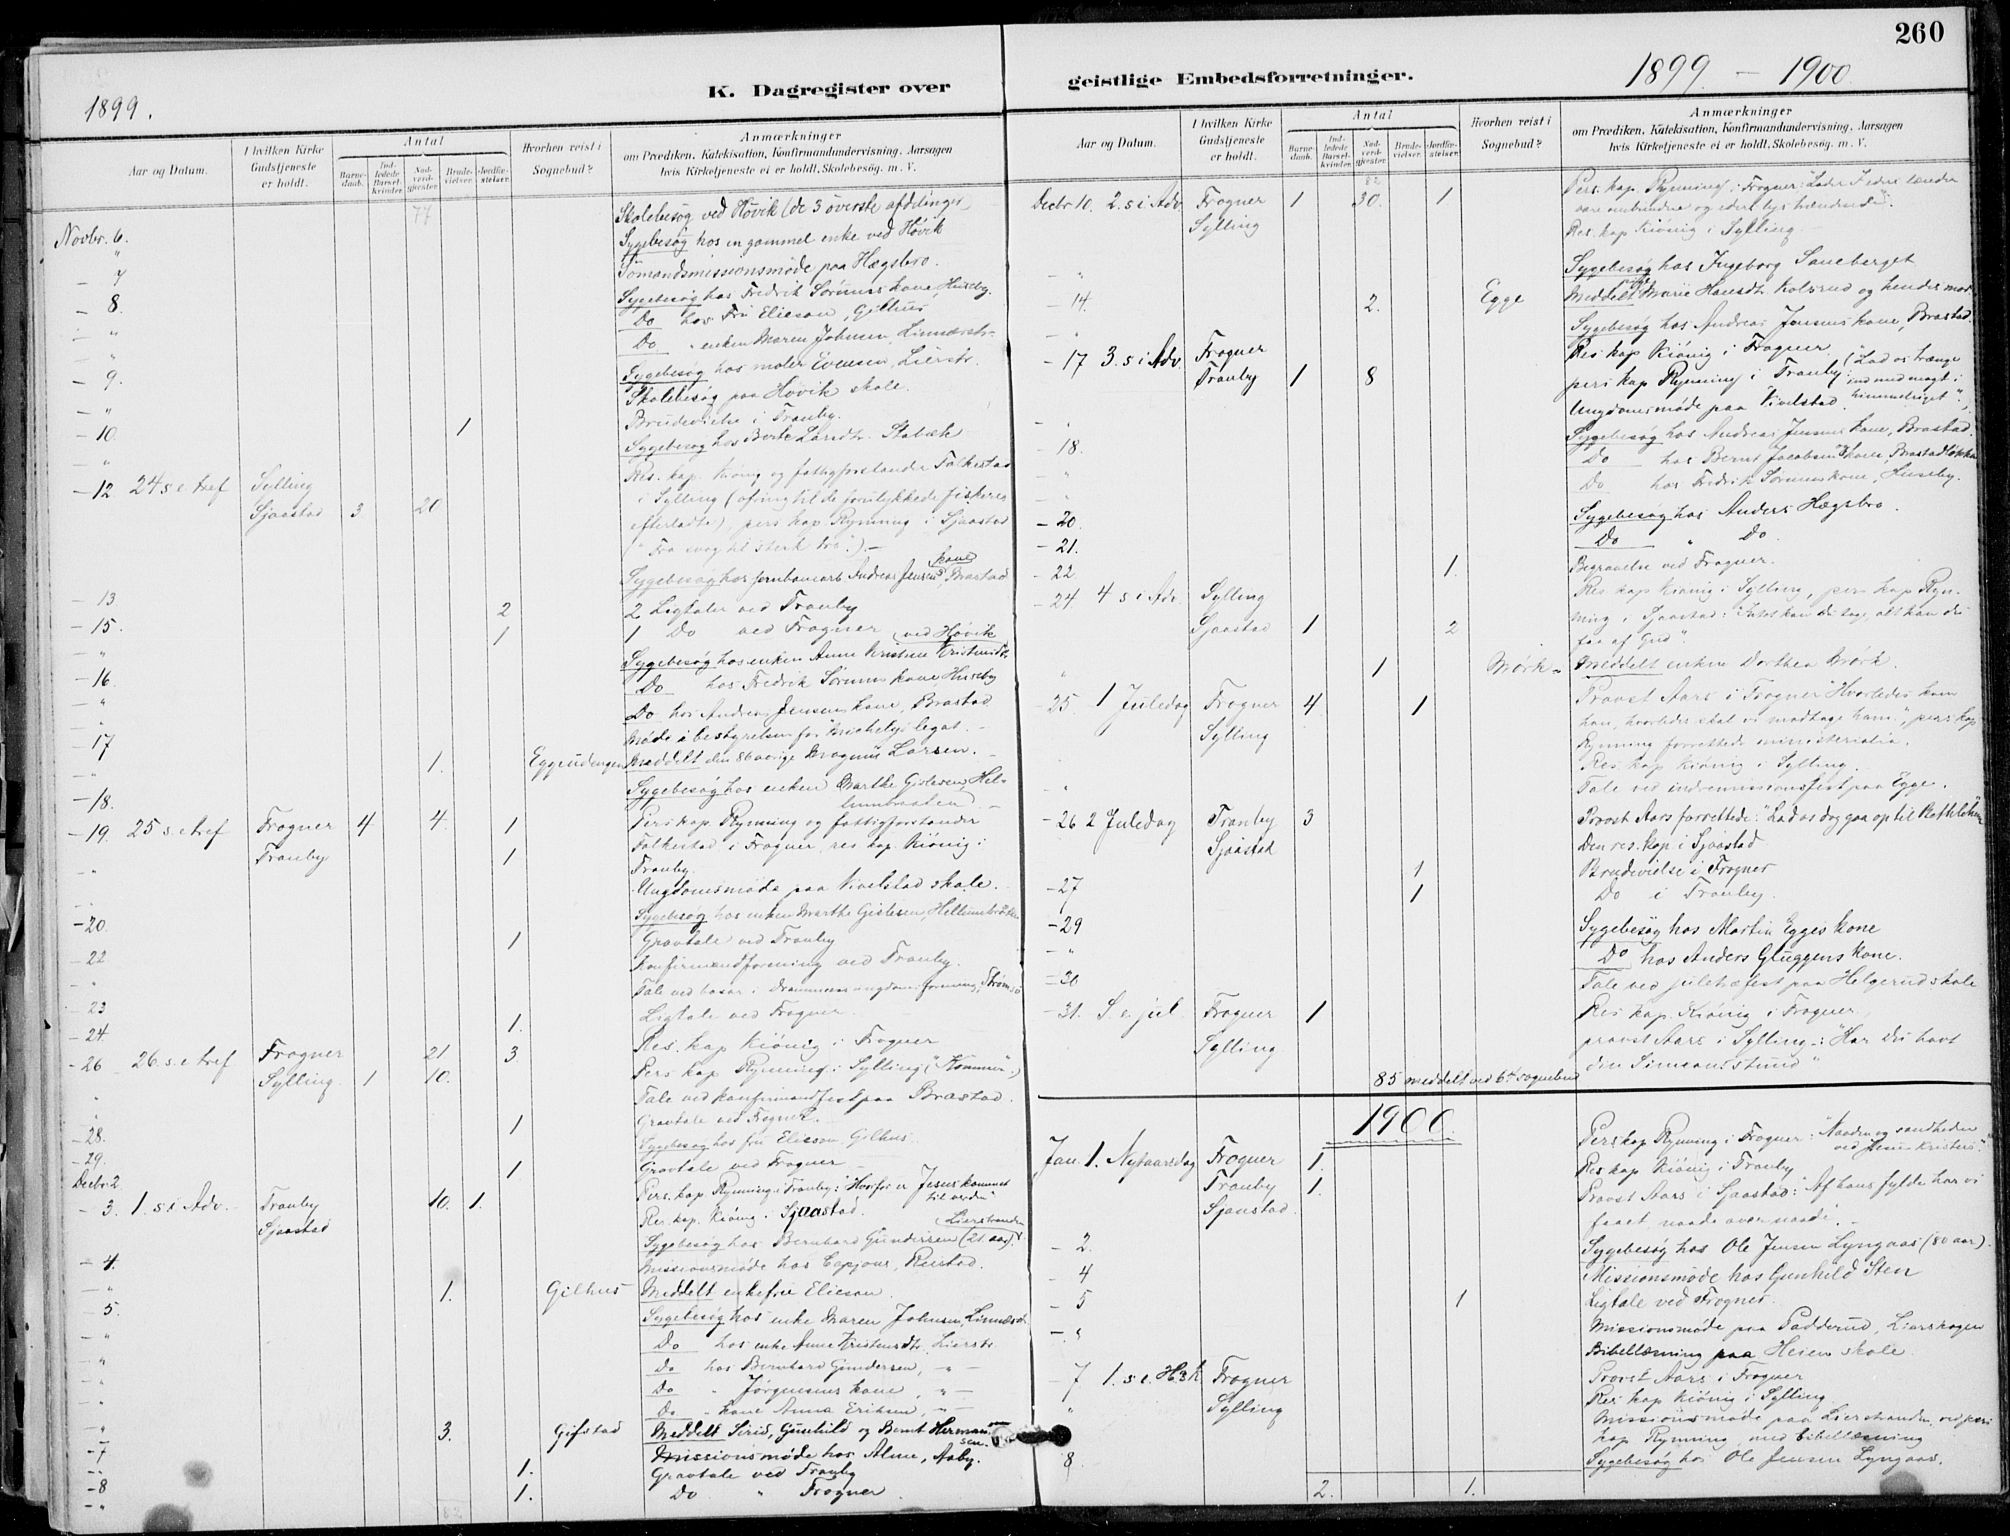 260
1899.
K. Dagregister over
Aar og Datum.
I hvilken Kirke Gudstjeneste er holdt.
Antal
Barnedaab.
Indledede Barselkvinder.
Nadverdgjester
Brudevielser.
Jordfæstelser.
Hvorhen reist i Sognebud?
Anmærkninger
om Prædiken, Katekisation, Konfirmandundervisning, Aarsagen
hvis Kirketjeneste ei er holdt, Skolebesøg, m. V.
77
Novbr. 6. Skolebesøg ved Høvik (de 3 øverste afdelinger)
" Sygebesøg hos en gammel enke ved Høvik
- 7 Sømandsmissionsmøde paa Hægsbro.
- 8. Sygebesøg hos Fredrik Sørums kone, Huseby.
" Do hos Fru Elieson, Gilhus
" Do " enken Maren Johnsen,
- 9. Sygebesøg hos maler Evensen, Lierstr.
" Skolebesøg paa Høvik skole.
- 10. 1 Brudevielse i Tranby.
" Sygebesøg hos
- 12. 24 s e tref Sylling Res. kap. Kiönig og fattigforstander Falkestad
Sjaastad 3 20 i Sylling (ofring til de forulykkede fiskeres
efterladte), pers kap. Rynning i Sjaastad
("Fra svag til sterk tro".) -
- 13 Sygebesøg hos jernbanearb. Andreas Jensens kone Brastad
- 15. 2 2 Ligtaler ved Tranby
" 1 1 Do ved Frogner
- 16. Sygebesøg hos enken Anne Kristine Kristensdtr. ved Høvik
" Do hos Fredrik Sørums kone Huseby
" Do hos Andreas Jensens kone, Brastad
- 17 Møde i bestyrelsen for Michelys legat. -
" 1. Eggeudengen Meddelt den 86 aarige Magnus Larsen. -
- 18. Sygebesøg hos enken Marthe Gislesen,
- 19. 25 s. e tref Frogner 4 4. 1 Pers kap. Rynning og fattigforstander
Tranby 1 Falkestad i Frogner, res kap. Kiönig i
Tranby.
" Ungdomsmøde paa Kivelstad skole.
- 20. Sygebesøg hos enken Marthe Gislesen,
- 22 1 Gravtale ved Tranby
" Konfirmandforening ved Tranby.
- 23 Tale ved basar i Drammens ungdomsforening, Strømsø
- 24. 1. Ligtale ved Frogner.
- 26 26. s. e tref Frogner 21 3 Res. kap Kiönig i Frogner
Sylling. 1 10. Pers kap Rynning i Sylling ("Kommer".)
" Tale ved konfirmandfest paa Bræstad.
- 28. 1 Gravtale ved Frogner.
- 29. Sygebesøg hos fru Elieson, Gilhus.
Decbr. 2. 1 Gravtale ved Frogner
- 3. 1. s. i Adv. - Tranby 10. 1. Pers. kap Rynning i Tranby: "Hvorfor er Jesus kommet til verden"
Sjaastad Res. kap. Kiönig i Sjaastad.
- 4. Sygebesøg hos Bernhard Gundersen (21 aar). Lierstranden
" Missionsmøde hos Capjons, Reistad.
- 5. 1. Gilhus Meddelt enkefru Elieson.
" Sygebesøg hos enke Maren Johnsen,
" Do hos enke Anne Kristensdtr. Lierstr.
" Do hos Bernhard Gundersen, " -
" Do " Jørgensens kone, " -
" Do " kone Anna Eriksen, " -
- 7 3. Gifstad Meddelt Siri, Gunhild og Bernt Hermansen.
" Missionsmøde hos Alme, Aaby.
- 8 1. Gravtale ved Tranby
" 1. Do " Frogner.
82
geistlige Embedsforretninger.
1899 - 1900.
Aar og Datum.
I hvilken Kirke Gudstjeneste er holdt.
Antal
Barnedaab.
Indledede Barselkvinder.
Nadverdgjester
Brudevielser.
Jordfæstelser.
Hvorhen reist i Sognebud?
Anmærkninger
om Prædiken, Katekisation, Konfirmandundervisning, Aarsagen
hvis Kirketjeneste ei er holdt, Skolebesøg, m. V.
82
Decbr 10. 2. s i Adv. Frogner 1 30. 1 Pers. kap. Rynning i Frogner: "Lader Jedre lænder
Sylling være ombundne og eders lys brændende".
Res. kap Kiönig i Sylling
" Sygebesøg hos Ingeborg Saueberget
- 14. 2. Egge Meddelt pige Marie Hansdtr. Kolsrud og hendes mor
" Sygebesøg hos Andreas Jensens kone, Brastad.
- 17 3. s i Adv. Frogner Res kap Kiönig i Frogner
Tranby 1 8 pers kap Rynning i Tranby: ("Lad os trænge ind med magt i himmeriget".)
" Ungdomsmøde paa Kivelstad.
- 18. Sygebesøg hos Andreas Jensens kone, Brastad.
" Do hos Bernt Jacobsens kone, Brastadløkka
" Do hos Fredrik Sørums kone, Huseby.
- 20. Sygebesøg hos Anders Hægsbro.
- 21. Do " Do
- 22 1. Begravelse ved Frogner.
- 24 4 s i Adv. Sylling Res kap Kiönig i Sylling, pers kap Ryn-
Sjaastad 1 2 ning i Sjaastad: "Intet kan du tage, alt kan du
faa af Gud".
" 1 Mörk Meddelt enken Dorthea Mörk.
- 25. 1 Juledag Frogner 4 1 Provst Aars i Frogner "Hvorledes kom
Sylling han, hvorledes skal vi modtage ham", pers kap
Rynning forrettede ministerialia.
Res. kap Kiönig i Sylling.
" Tale ved indremissionsfest paa Egge.
- 26 2 Juledag Tranby 3 Provst Aars forrettede: "Lad os dog gaa op til Bethlehem
Sjaastad Den res. kap i Sjaastad
- 27 1 Brudevielse i Frogner
" 1 Do i Tranby.
- 29 Sygebesøg hos Martin Egges kone
" Do hos Anders Gluggens kone.
- 30 Tale ved juletræfest paa Helgerud skole
- 31. S. e. jul. Frogner 1 Res kap. Kiönig i Frogner.
Sylling provst Aars i Sylling: "Har du havt
din Simeonsstund"
85 meddelt ved 64 sognebud
1900
Jan. 1. Nytaarsdag Frogner 1. Pers kap Rynning i Frogner: "Naaden og sandheden ved Jesus Kristus".
Tranby 1. Res kap Kiönig i Tranby
Sjaastad. Provst Aars i Sjaastad: "Af hans fylde har vi
faaet, naade over naade". -
- 2. Sygebesøg hos Ole Jensen Lyngaas (80 aar).
- 4 Missionsmøde hos Gunhild Sten
- 5 1 Ligtale ved Frogner.
" Missionsmøde paa Padderud, Lierskogen
Bibellæsning paa Heiens skole.
- 7 1. s. e. H3K Frogner Provst Aars i Frogner
" Sylling Res kap Kiönig i Sylling
Missionsmøde paa Lierstranden ved pers
kap Rynning med bibellæsning
8. Sygebesøg hos Ole Jensen Lyngaas.
2. 1.